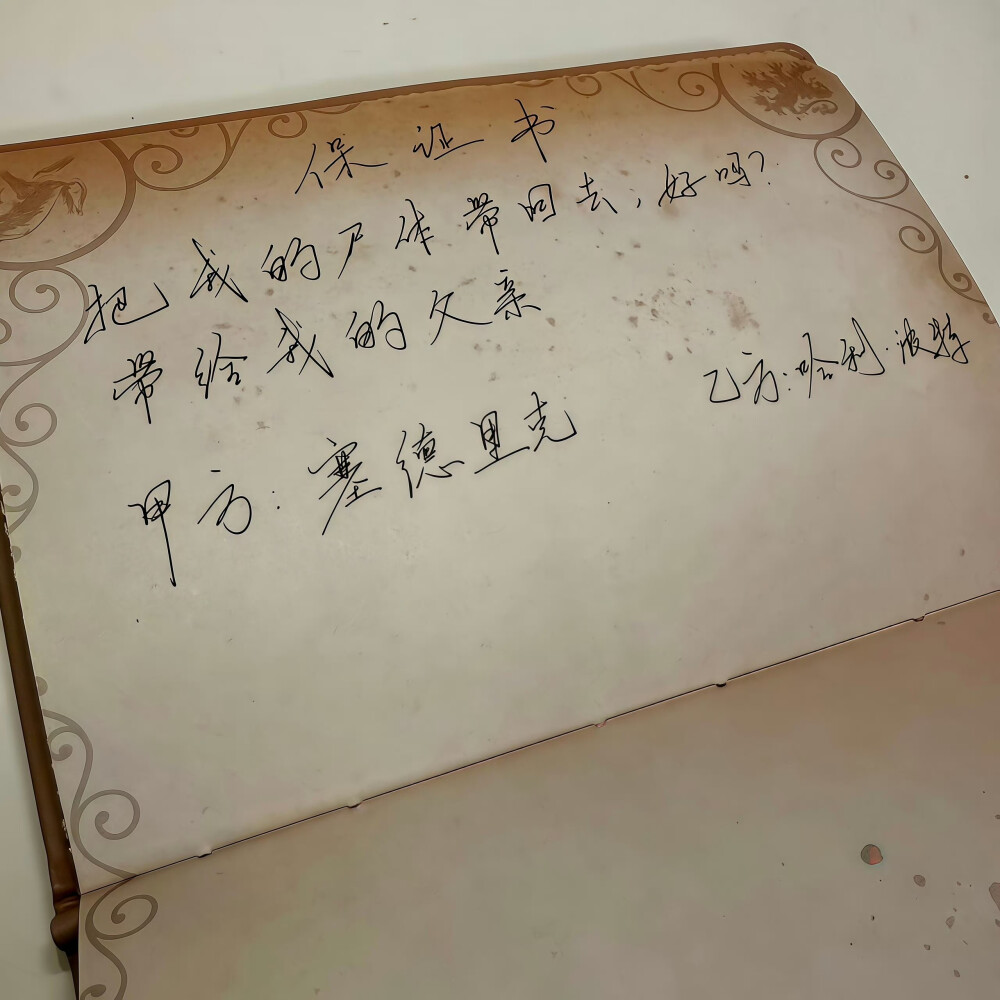 保证书
把我的尸体带回去,好吗?
带给我的父亲
乙方:哈利·波特
甲方:塞德里克